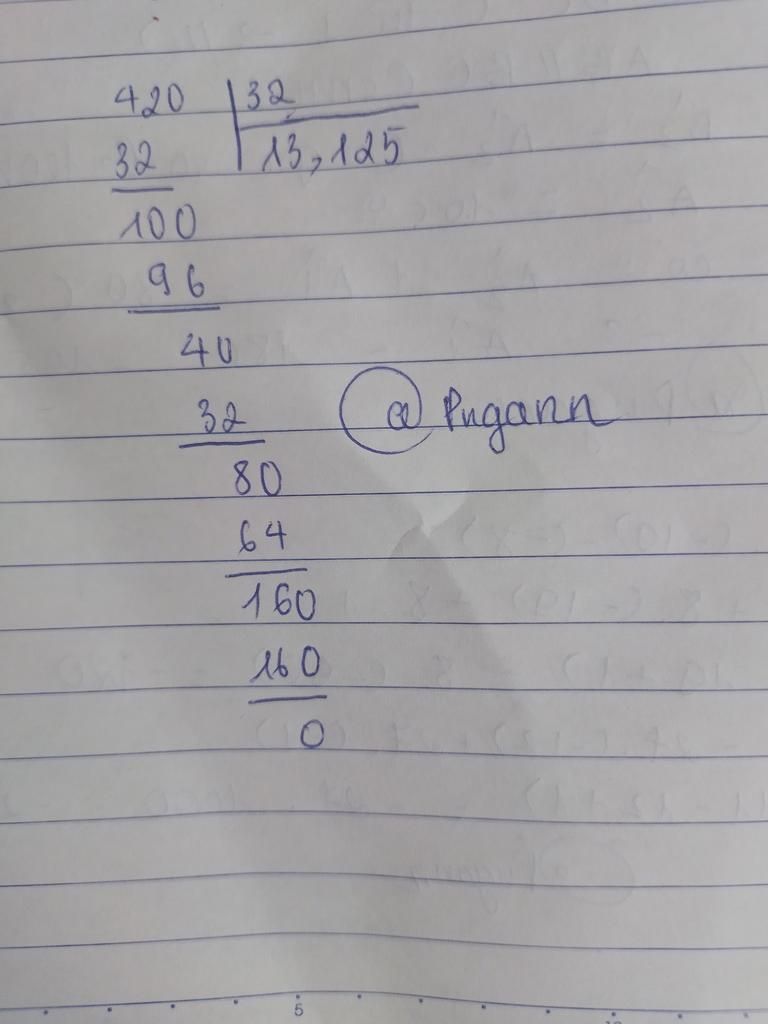 420 32
32 13,125
100
96
40
32 @ Pugann
80
64
160
160
0
5